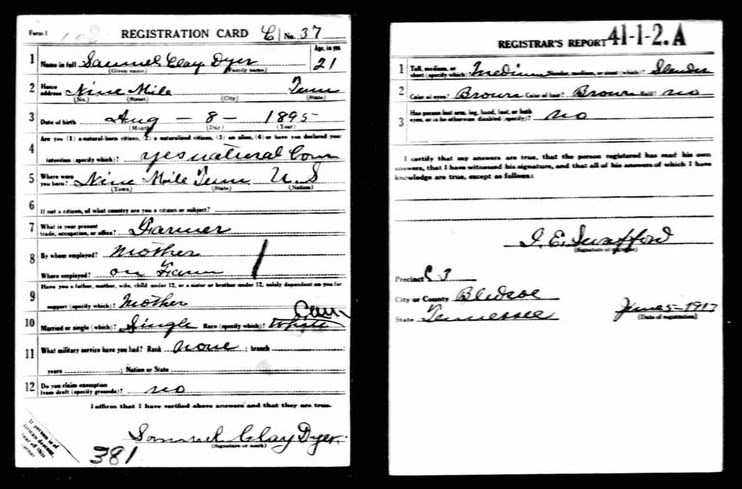 Form 1 REGISTRATION CARD No. 37
Age, in yrs.
1 Name in full Samuel Clay Dyer 21
(Given name) (Family name)
2 Home address Nine Mile Tenn
(No.) (Street) (City) (State)
3 Date of birth Aug - 8 - 1895
(Month) (Day) (Year)
Are you (1) a natural-born citizen, (2) a naturalized citizen, (3) an alien, (4) or have you declared your
4 intention (specify which)? yes natural Born
5 Where were you born? Nine Mile Tenn U.S
(Town) (State) (Nation)
6 If not a citizen, of what country are you a citizen or subject?
7 What is your present trade, occupation, or office? Farmer
8 By whom employed? Mother
Where employed? on Farm
Have you a father, mother, wife, child under 12, or a sister or brother under 12, solely dependent on you for
9 support (specify which)? Mother
10 Married or single (which)? Single Race (specify which)? White
11 What military service have you had? Rank none ; branch
years ; Nation or State
12 Do you claim exemption from draft (specify grounds)? no
I affirm that I have verified above answers and that they are true.
Samuel Clay Dyer
(Signature or mark)
381
REGISTRAR'S REPORT 41-1-2.A
1 Tall, medium, or short (specify which)? medium Slender, medium, or stout (which)? Slender
2 Color of eyes? Brown Color of hair? Brown Bald? no
3 Has person lost arm, leg, hand, foot, or both eyes, or is he otherwise disabled (specify)? no
I certify that my answers are true, that the person registered has read his own
answers, that I have witnessed his signature, and that all of his answers of which I have
knowledge are true, except as follows:
Swafford
(Signature of registrar)
Precinct 3
City or County Bledsoe
State Tennessee June 5-1917
(Date of registration)